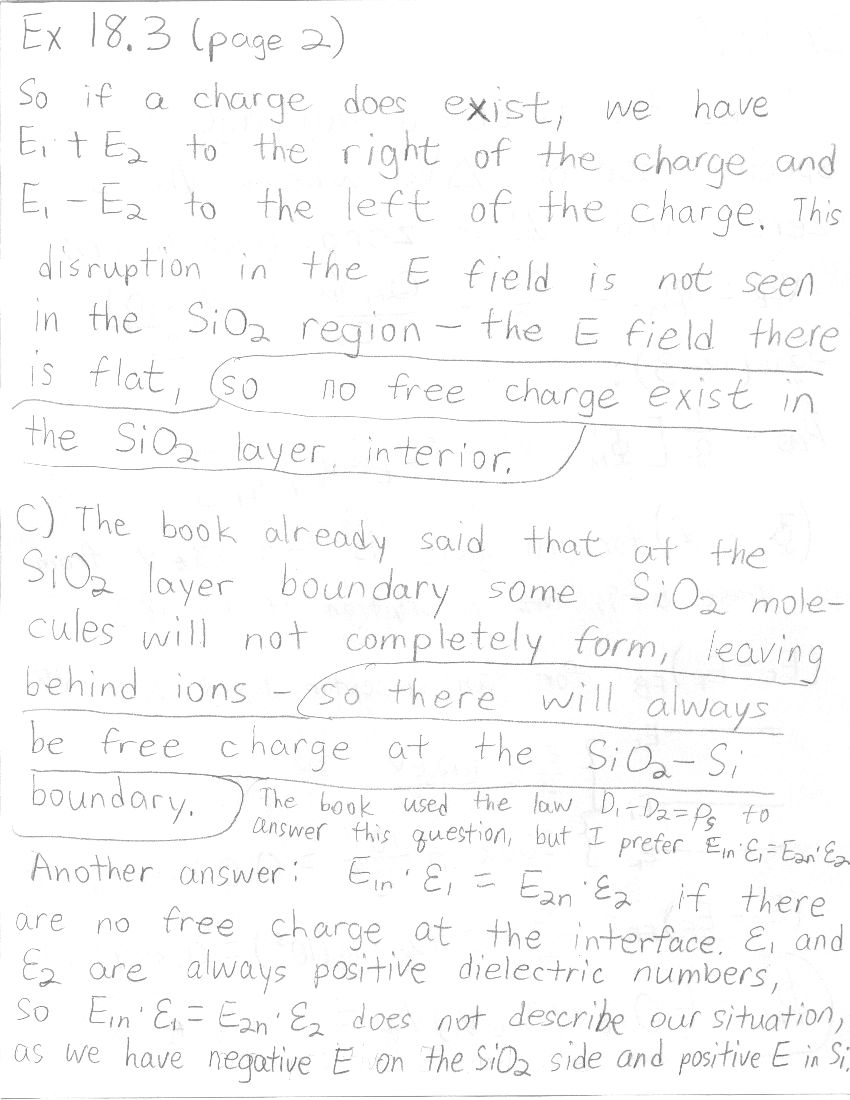 Ex 18.3 (page 2)
So if a charge does exist, we have
E₁ + E₂ to the right of the charge and
E₁ - E₂ to the left of the charge. This
disruption in the E field is not seen
in the SiO₂ region - the E field there
is flat, so no free charge exist in
the SiO₂ layer interior.
C) The book already said that at the
SiO₂ layer boundary some SiO₂ mole-
cules will not completely form, leaving
behind ions - so there will always
be free charge at the SiO₂-Si
boundary. The book used the law D₁-D₂=ρₛ to
answer this question, but I prefer E₁ₙ·ε₁=E₂ₙ·ε₂
Another answer: E₁ₙ·ε₁ = E₂ₙ·ε₂ if there
are no free charge at the interface. ε₁ and
ε₂ are always positive dielectric numbers,
so E₁ₙ·ε₁ = E₂ₙ·ε₂ does not describe our situation,
as we have negative E on the SiO₂ side and positive E in Si.